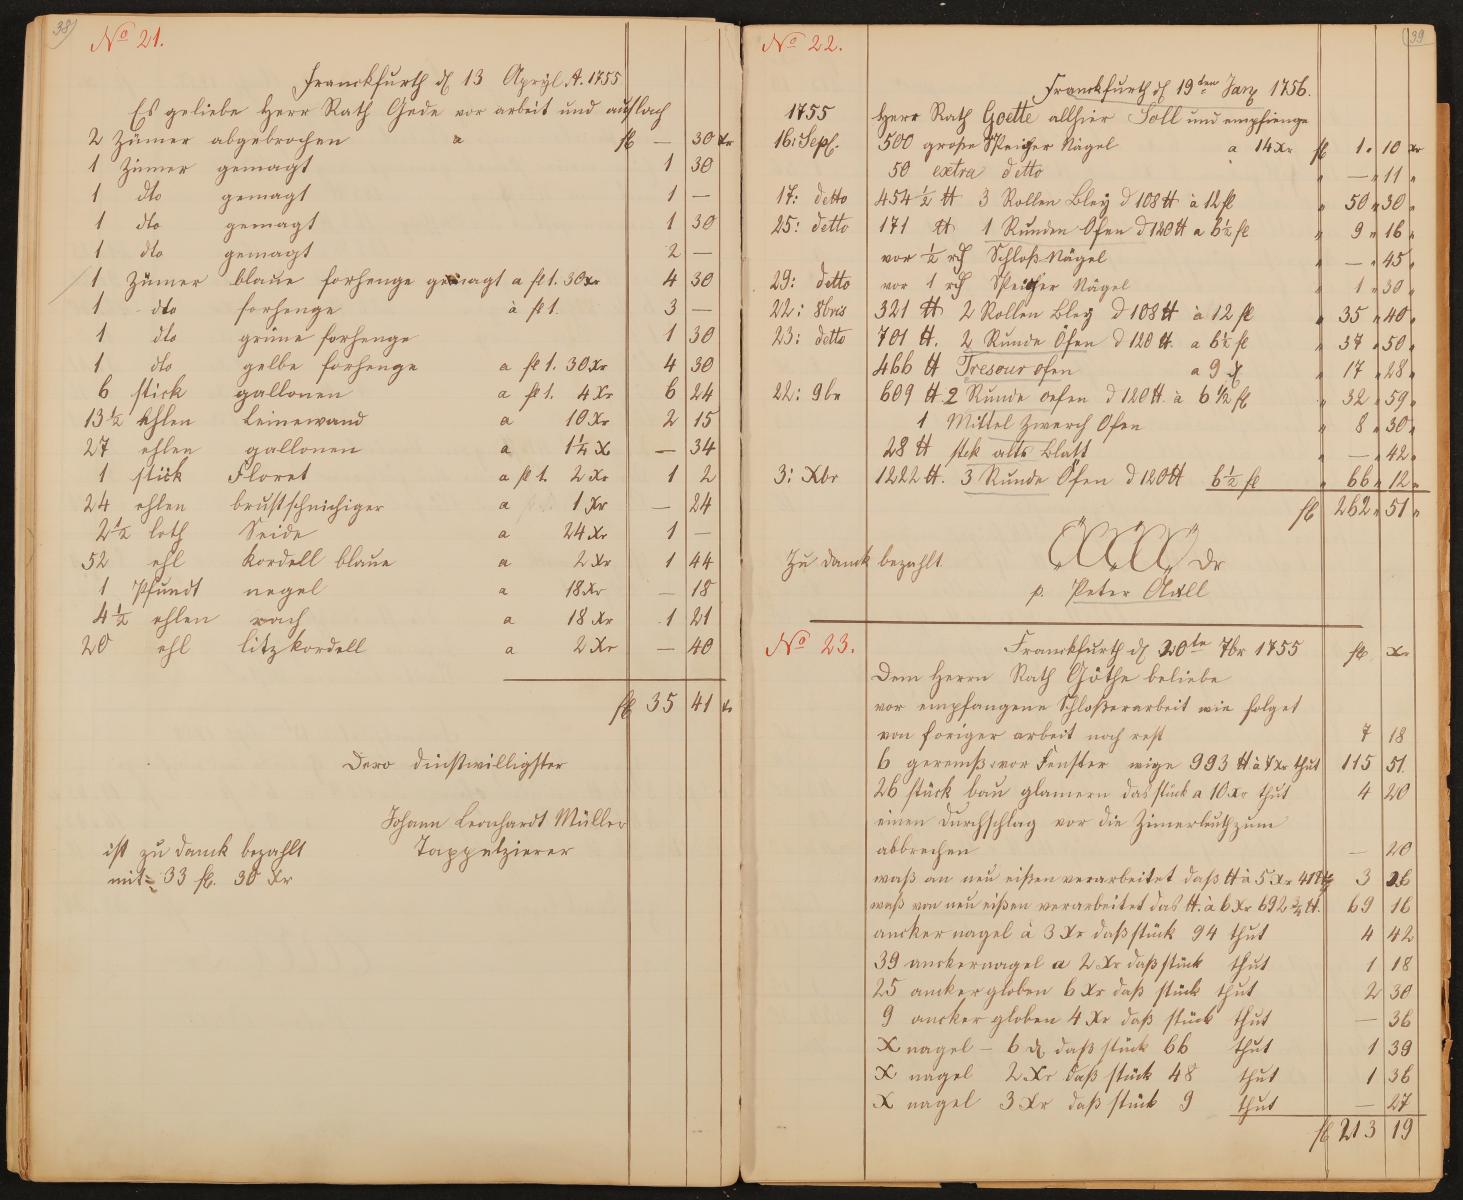 38
No 21.
Franckfurth d 13 Apryl A. 1755
Es geliebe Herr Rath Gede vor arbeit und auslach
2 Zümer abgebrochen a fl — 30 xr
1 Zümer gemagt 1 30
1 dto gemagt 1 —
1 dto gemagt 1 30
1 dto gemagt 2 —
1 Zümer blaue forhenge gemagt a fl 1. 30 xr 4 30
1 dto forhenge à fl 1. 3 —
1 dto grüne forhenge 1 30
1 dto gelbe forhenge a fl 1. 30 Xr 4 30
6 stick gallonen a fl 1. 4 Xr 6 24
13 1/2 Ehlen Leinewand a 10 Xr 2 15
27 ehlen gallonen a 1 1/4 X — 34
1 stick Floret a fl 1. 2 Xr 1 2
24 ehlen brustschnichiger a 1 Xr — 24
2 1/2 loth Seide a 24 Xr 1 —
52 ehl Kordell blaue a 2 Xr 1 44
1 Pfundt negel a 18 Xr — 18
4 1/2 ehlen wach a 18 Xr 1 21
20 ehl litzkordell a 2 Xr — 40
fl 35 41 xr
Dero dinstwilligster
Johann Leonhardt Müller
Tappetzierer
ist zu danck bezahlt
mit 33 fl. 30 Xr
39
No 22.
Franckfurth d 19ten Jany 1756.
1755 Herr Rath Goette allhier Soll und empfienge
16: Sept. 500 große Speicher Nägel a 14 Xr fl 1. 10 xr
50 extra ditto — 11
17: detto 454 1/2 tt 3 Rollen Bley d 108 tt à 12 fl 50 30
25: detto 171 tt 1 Runden Ofen d 120 tt a 6 1/2 fl 9 16
vor 1/2 rch Schloß Nägel — 45
29: detto vor 1 rch Speicher Nägel 1 30
22: 8bris 321 tt 2 Rollen Bley d 108 tt à 12 fl 35 40
23: detto 701 tt. 2 Runde Öfen d 120 tt. a 6 1/2 fl 37 50
466 tt Tresour ofen a 9 X 17 28
22: 9br 609 tt 2 Runde oefen d 120 tt. à 6 1/2 fl 32 59
1 Mittel Zwerch Ofen 8 30
28 tt stek alts blatt — 42
3: Xbr 1222 tt. 3 Runde Öfen d 120 tt 6 1/2 fl 66 12
fl 262 51
Zu danck bezahlt Dr
p. Peter
No 23.
Franckfurth d 20te 7br 1755 fl. xr
Dem Herrn Rath Göthe beliebe
vor empfangene Schloßerarbeit wie folget
von foriger arbeit noch rest 7 18
6 geremß vor Fenster wige 993 tt à 7 Xr thut 115 51.
26 stück bau glamern das stück a 10 Xr thut 4 20
einen Durchschlag vor die Zimerleuth zum
abbrechen — 20
waß an neu eißen verarbeitet daß tt à 5 Xr 41 3 26
waß von neu eißen verarbeitet das tt. à 6 Xr 692 3/4 tt. 69 16
ancker nagel à 3 Xr daß stück 94 thut 4 42
39 anckernagel a 2 Xr daß stück thut 1 18
25 ancker globen 6 Xr daß stück thut 2 30
9 ancker globen 4 Xr daß stück thut — 36
X nagel – 6 d daß stück 66 thut 1 39
X nagel 2 Xr daß stück 48 thut 1 36
X nagel 3 Xr daß stück 9 thut — 27
fl 213 19